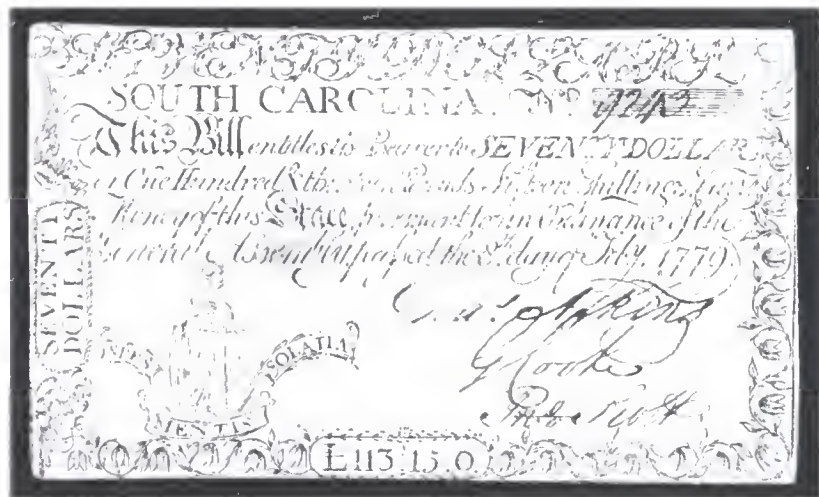 SOUTH CAROLINA. No. 9243
This Bill entitles its Bearer to SEVENTY DOLLARS
or One Hundred & thirteen Pounds fifteen Shillings
Money of this State, pursuant to an Ordinance of the
General Assembly passed the 8th day of Feby. 1779
SEVENTY
DOLLARS
SPES MENTIS SOLATIA
Atkins
G Cooke
Scott
£113.15.0